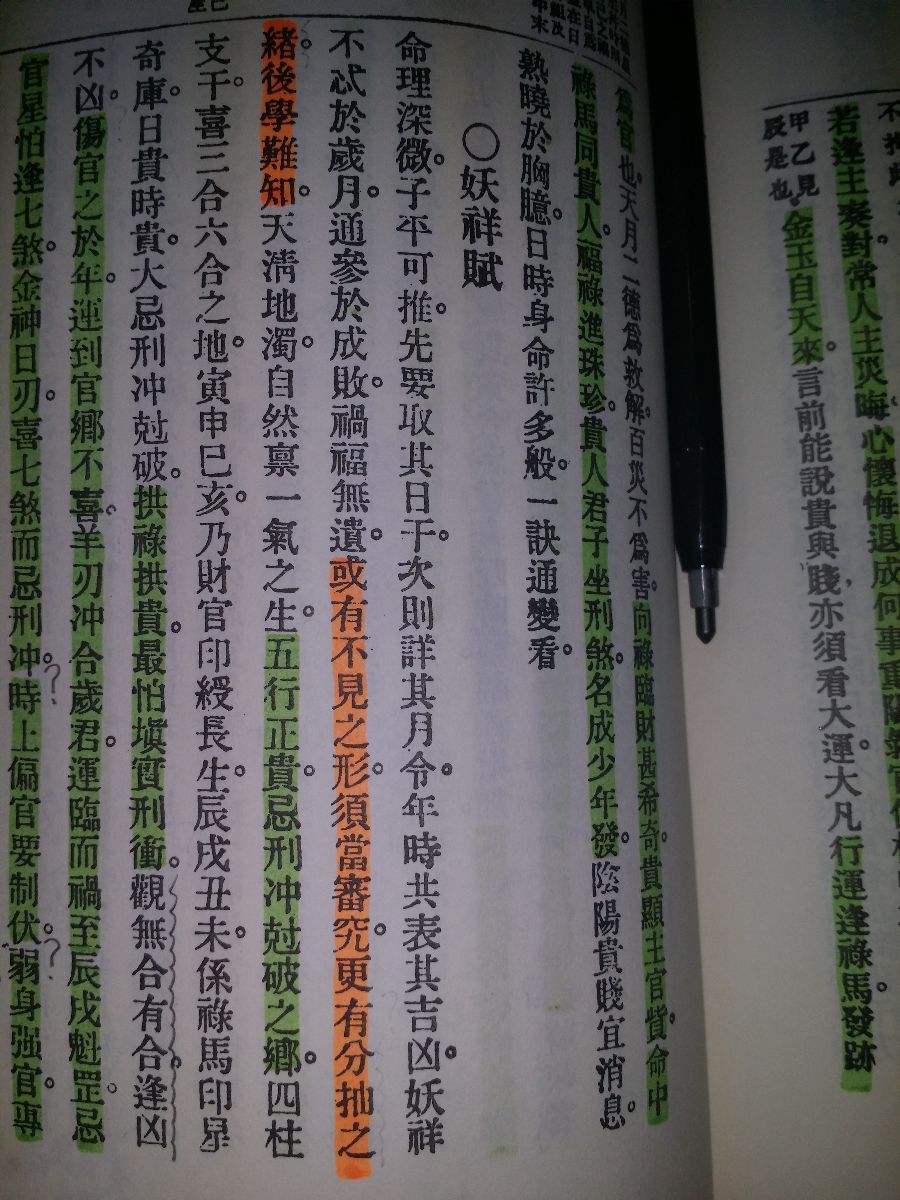 不推
若逢主奏對常人主災晦心懷悔退成何事重
甲乙見
辰是也
金玉自天來言前能說貴與賤亦須看大運大凡行運逢祿馬發跡
為官也天月二德為救解百災不為害向祿臨財甚希奇貴顯主官貲命中
祿馬同貴人福祿進珠珍貴人君子坐刑煞名成少年發陰陽貴賤宜消息
熟曉於胸臆日時身命許多般一訣通變看
〇妖祥賦
命理深微子平可推先要取其日干次則詳其月令年時共表其吉凶妖祥
不忒於歲月通參於成敗禍福無遺或有不見之形須當審究更有分抽之
緒後學難知天淸地濁自然禀一氣之生五行正貴忌刑冲尅破之鄉四柱
支干喜三合六合之地寅申巳亥乃財官印綬長生辰戌丑未係祿馬印星
奇庫日貴時貴大忌刑冲尅破拱祿拱貴最怕塡實刑衝觀無合有合逢凶
不凶傷官之於年運到官鄉不喜羊刃冲合歲君運臨而禍至辰戌魁罡忌
官星怕逢七煞金神日刃喜七煞而忌刑冲時上偏官要制伏弱身强官專